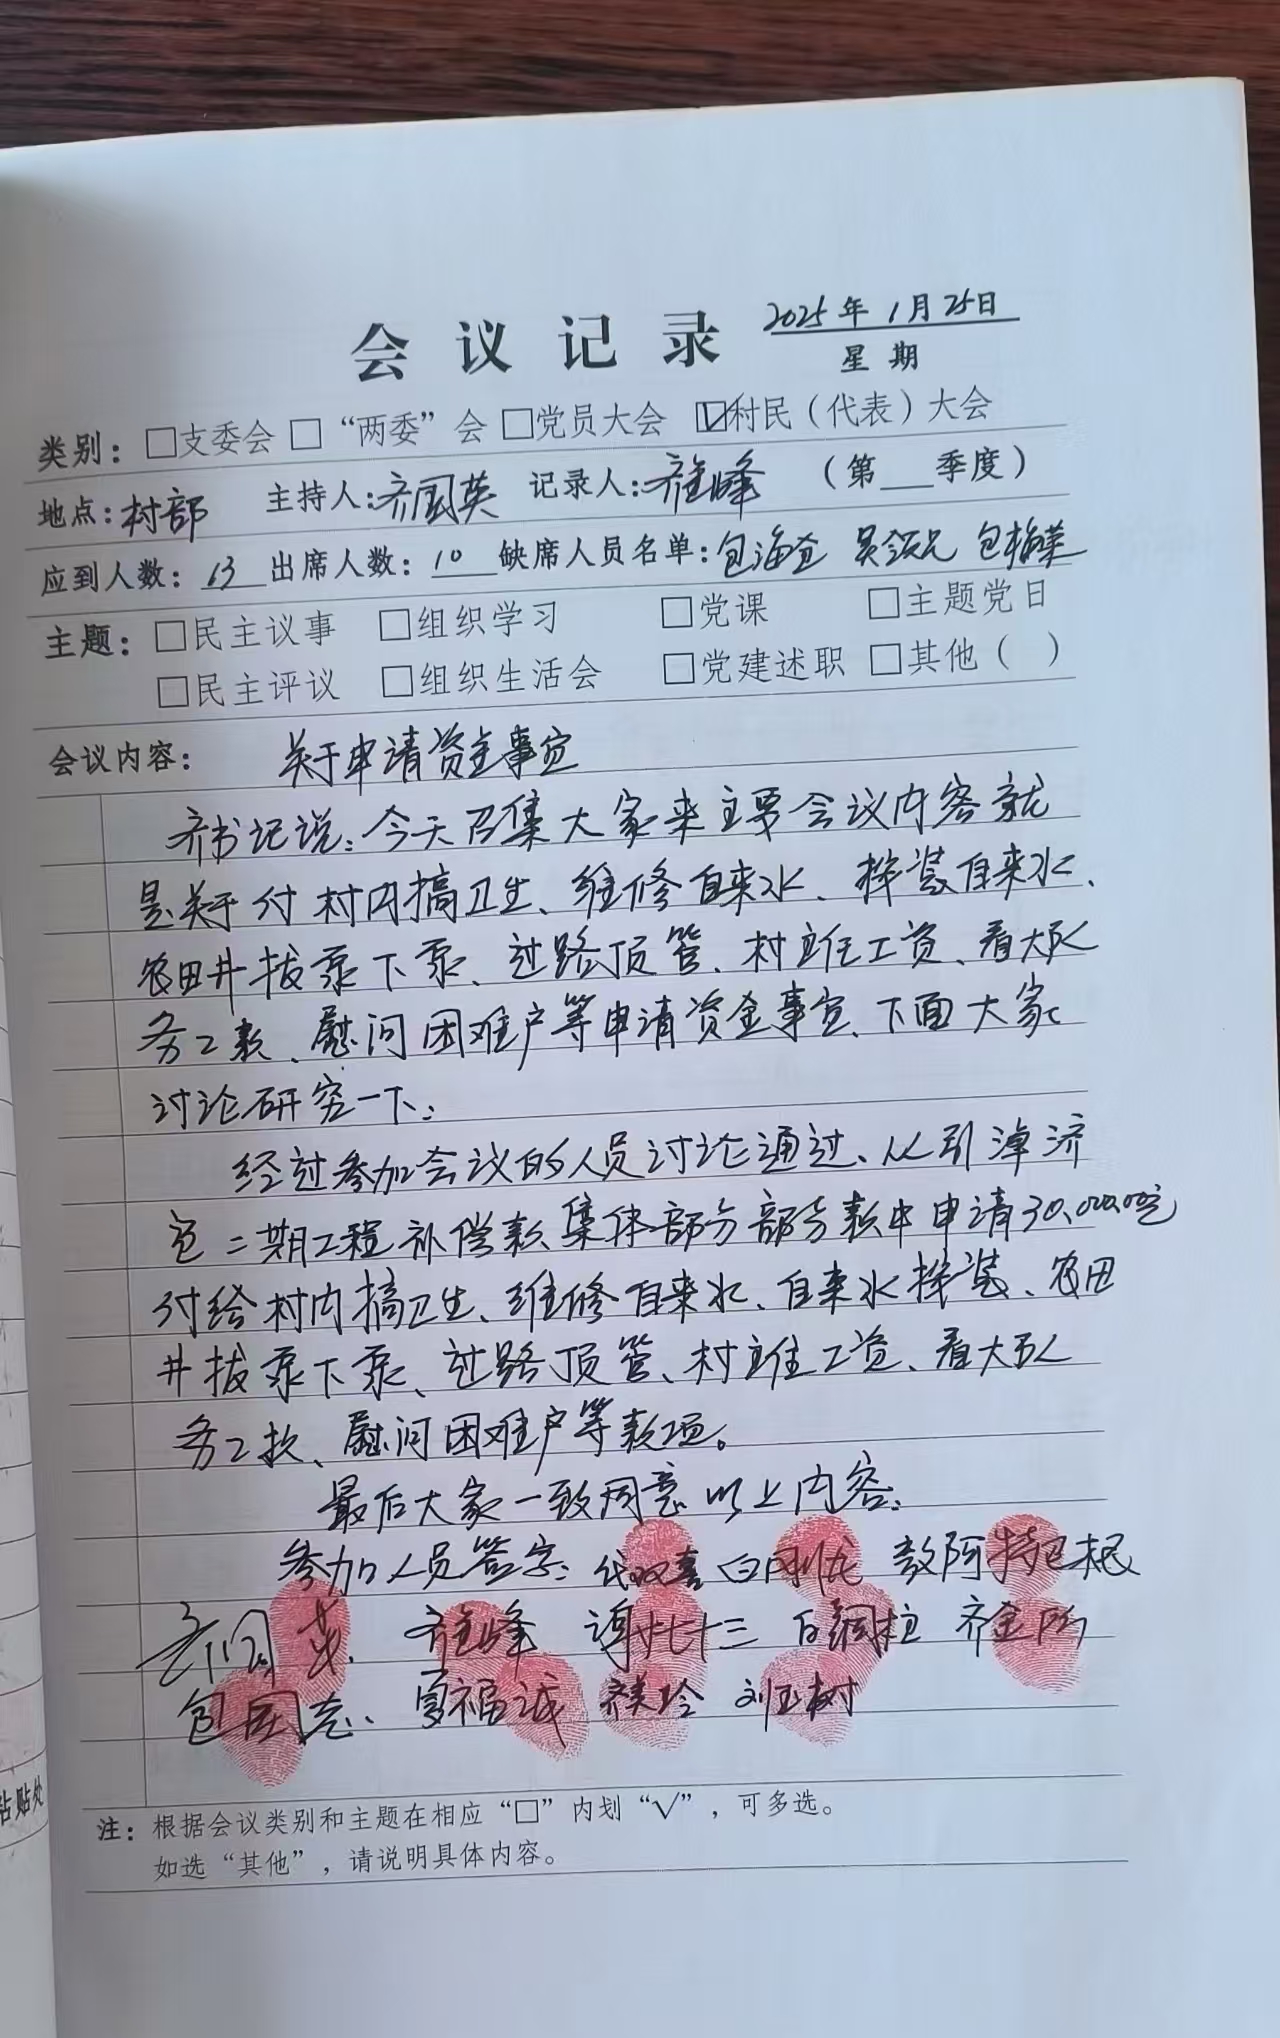 会议记录 2025年1月25日
星期
类别：□支委会 □“两委”会 □党员大会 ☑村民（代表）大会
地点：村部 主持人：齐国英 记录人：齐峰 （第 季度）
应到人数：13 出席人数：10 缺席人员名单：包海仓 吴领兄 包梅荣
主题：□民主议事 □组织学习 □党课 □主题党日
□民主评议 □组织生活会 □党建述职 □其他（ ）
会议内容： 关于申请资金事宜
齐书记说：今天召集大家来主要会议内容就
是关于付村内搞卫生、维修自来水、拆装自来水、
农田井拔泵下泵、过路顶管、村班工资、看大队
务工款、慰问困难户等申请资金事宜、下面大家
讨论研究一下：
经过参加会议的人员讨论通过、从引淖济
宅二期工程补偿款集体部分部分款中申请30,000.00元
付给村内搞卫生、维修自来水、自来水拆装、农田
井拔泵下泵、过路顶管、村班工资、看大队
务工款、慰问困难户等款项。
最后大家一致同意以上内容。
参加人员签字：代双喜 白刚优 敖阿特巴根
齐国英、 齐峰 谭七十三 白铜柱 齐金所
包国志、 夏福诚 齐美玲 刘玉树
粘贴处
注：根据会议类别和主题在相应“□”内划“√”，可多选。
如选“其他”，请说明具体内容。